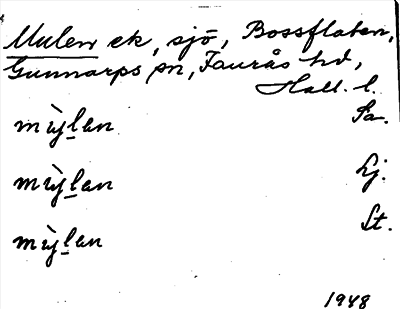 Mulen ek, sjö, Bossflaten,
Gunnarps sn, Faurås hd,
Hall. l.
mùl̲an Sa.
mùl̲an Lj.
mùl̲an St.
1948